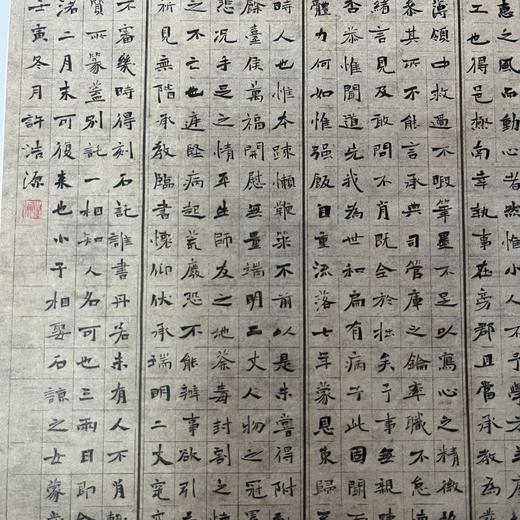 惠之風而動心者然
也得邑極南幸執事在旁郡且當承教為
薄領中救過不暇筆墨不足以寫心之精微
恭其所不能言承典司管庫之鑰率職不怠
緒言見及敢問不肖既全於拙矣于事無親疎
否恭惟聞道先我為世和扁有病于此固聞
體力何如惟强飯自重流落七年蒙恩東歸
時人也惟本疎懶鞭策不前以是未嘗得附
餘臺候萬福開慰無量端明二丈人物之冠
悲况手足之情平生師友之地荼毒封割之
之不亡也遽嬰病起荒廢恐不能辦事欲引
祈見無階承教臨書懷仰伏承端明二丈寔
不審幾時得刻石託誰書丹若未有人不肖輒
質示篆盖別託一相知人名可也三兩日即令
渚二月末可復来也小子相娶石諒之女蒙
壬寅冬月許浩源